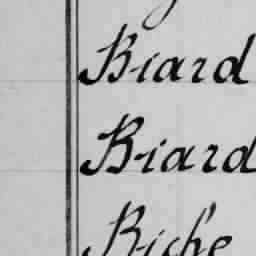 Biard
Biard
Riché